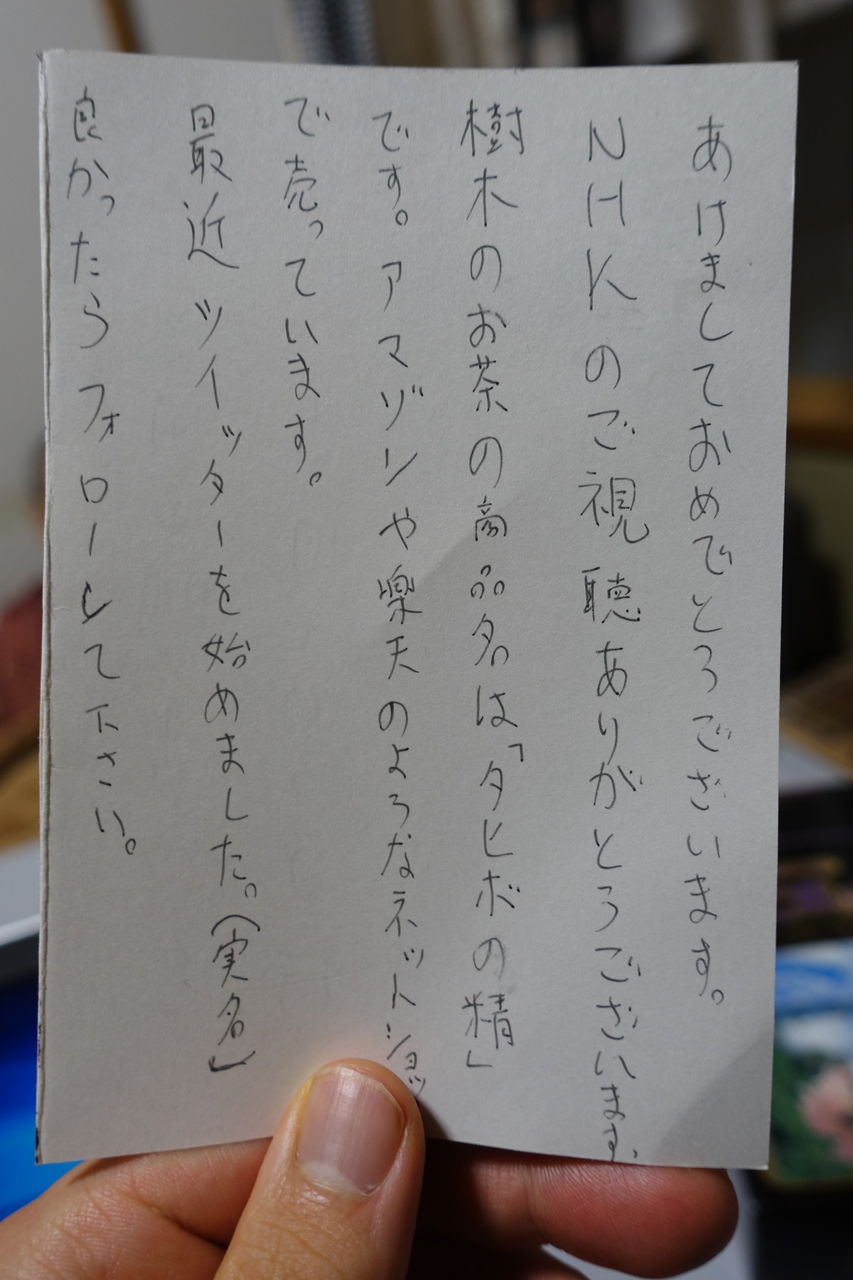 あけましておめでとうございます。
NHKのご視聴ありがとうございます。
樹木のお茶の商品名は「タヒボの精」
です。アマゾンや楽天のようなネットショッ
で売っています。
最近ツイッターを始めました。(実名)
良かったらフォローして下さい。